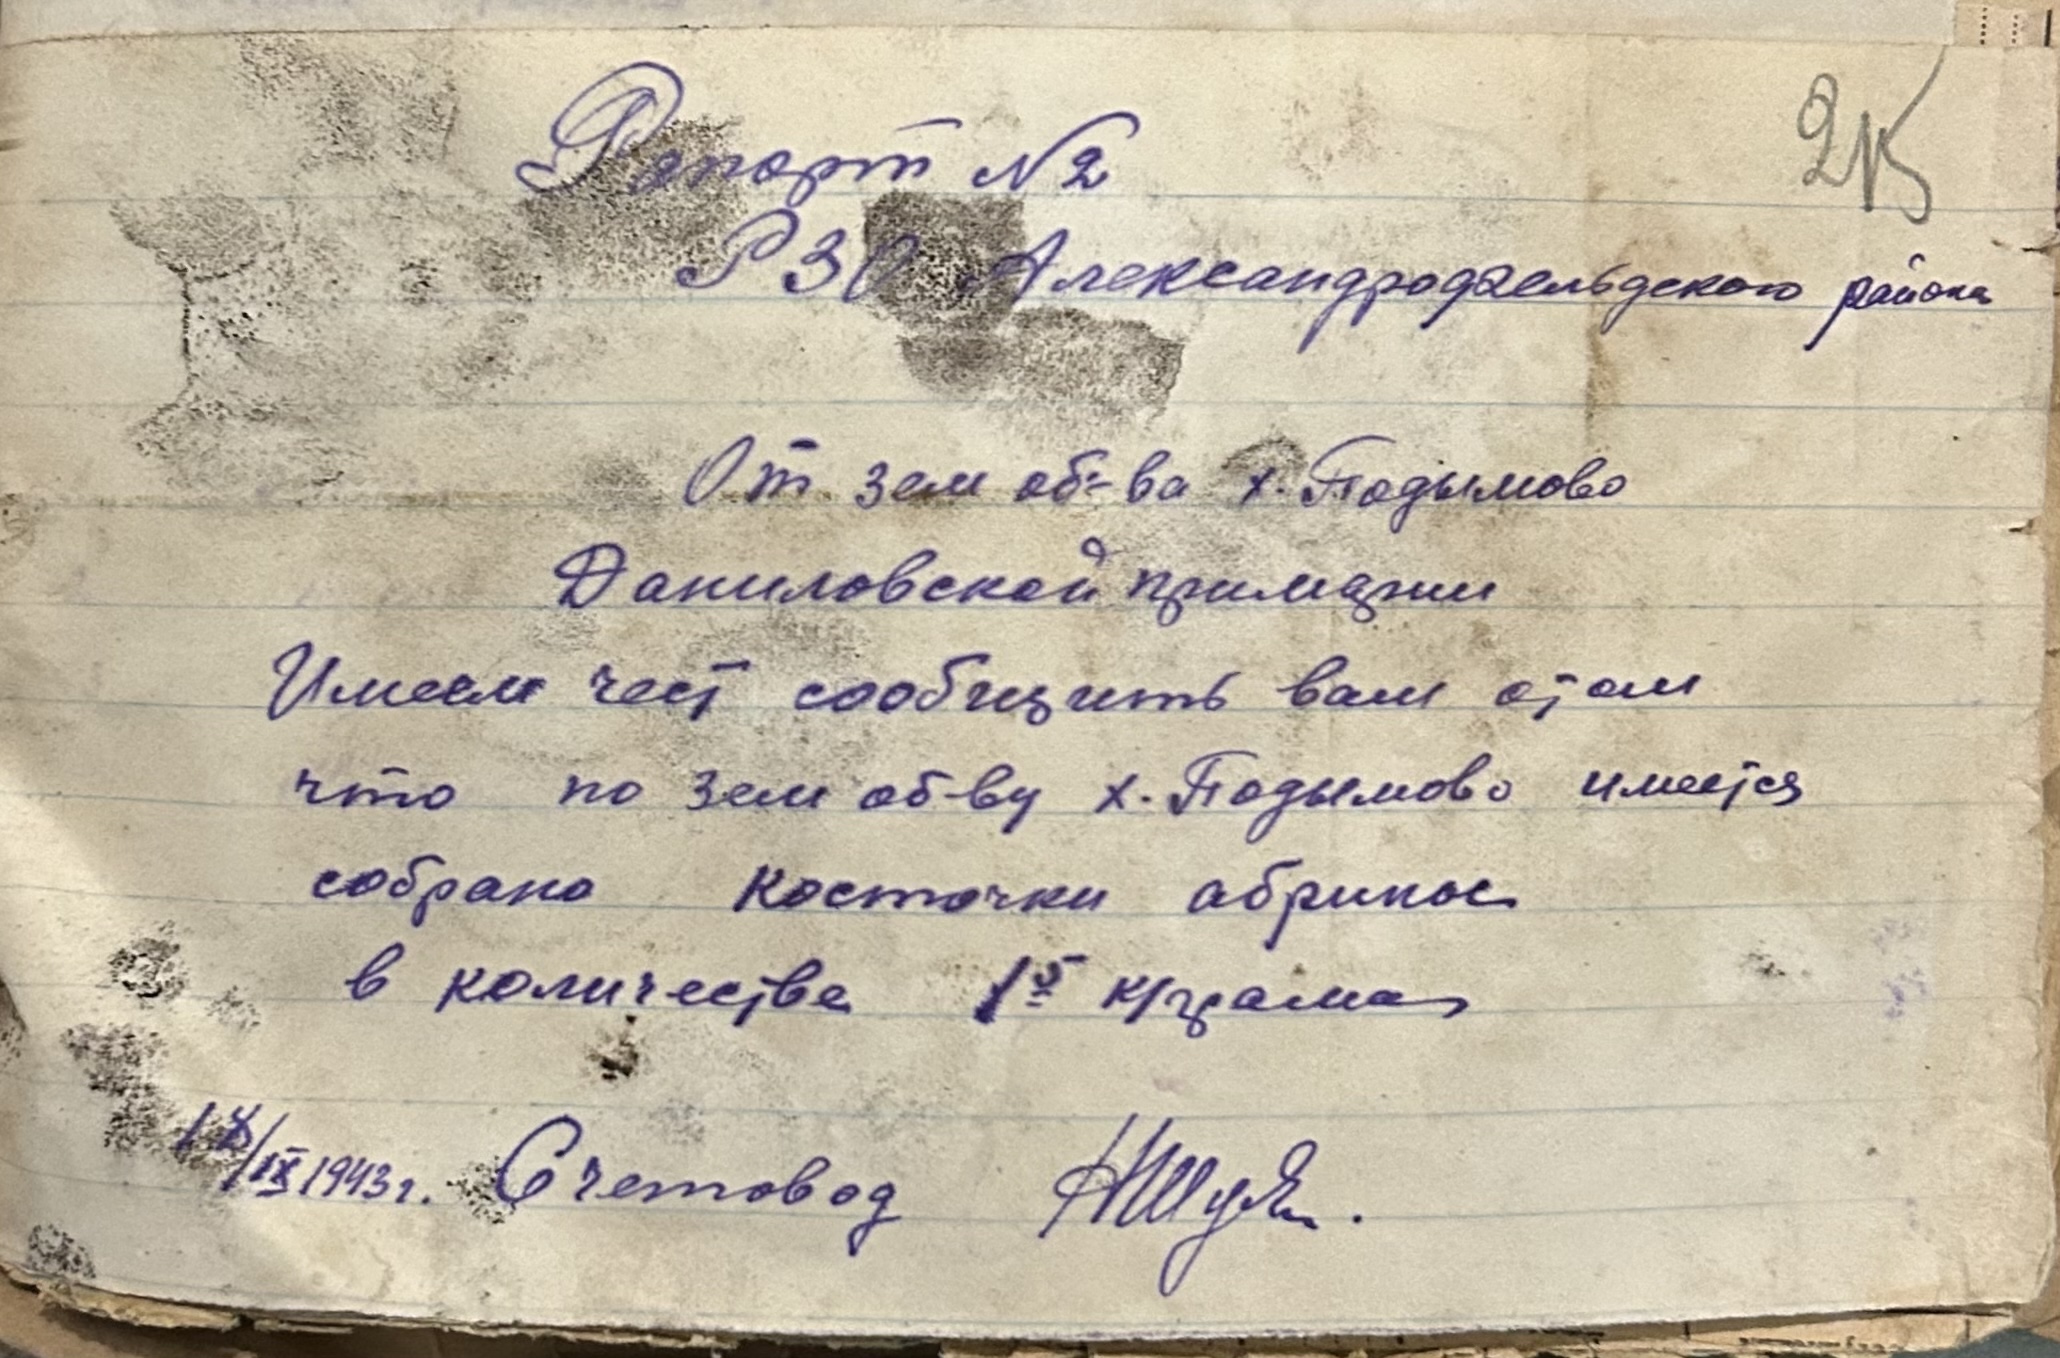 25
Рапорт №2
РЗО Александрофельдского района
От зем об-ва х. Подымово
Даниловской примарии
Имеем чест сообщить вам отом
что по зем об-ву х. Подымово имеется
собрано косточки абрикос
в количестве 15 к/грама
/IX 1943 г. Счетовод